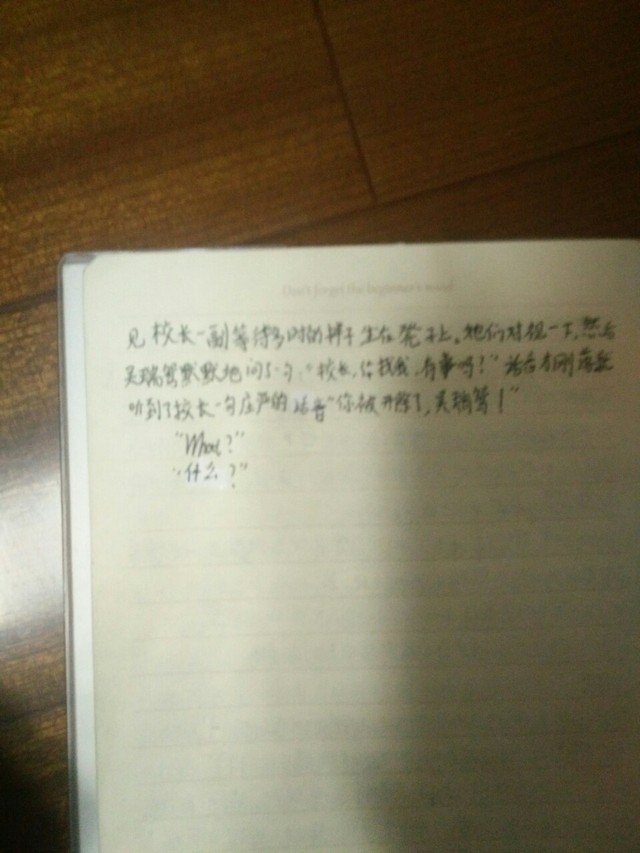 Don't forget the beginner's mind
见校长一副等待多时的样子坐在凳子上。她们对视一下,然后
吴瑞莺默默地问了一句:"校长,你找我,有事吗?"话音刚落就
听到了校长一句庄严的话音"你被开除了,吴瑞莺!"
"What?"
"什么?"